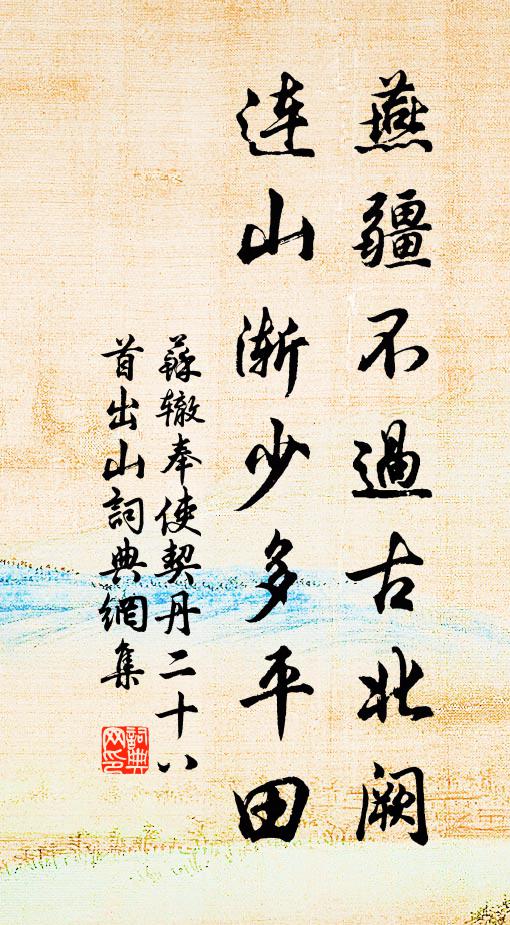 燕疆不過古北闕
連山漸少多平田
蘇轍奉使契丹二十八
首出山詞典網集
詞典
网印